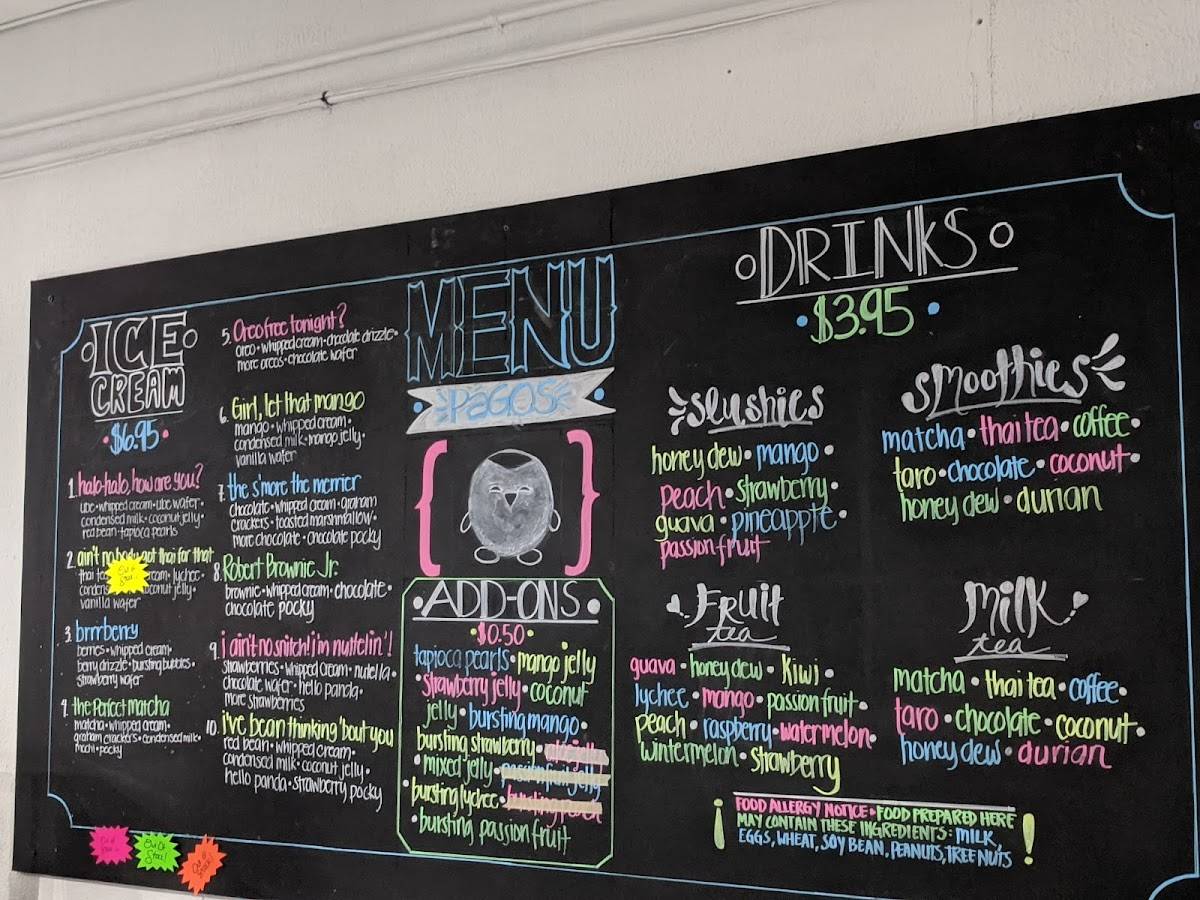 ICE
CREAM
$6.95
1. halo-halo, how are you?
ube • whipped cream • ube wafer •
condensed milk • coconut jelly •
red bean • tapioca pearls
2. ain't no body got thai for that
thai tea cream • lychee •
coconut jelly •
vanilla wafer
Out of
3. brrrberry
berries • whipped cream •
berry drizzle • bursting bubbles •
strawberry wafer
4. the perfect matcha
matcha • whipped cream •
graham crackers • condensed milk •
mochi • pocky
5. Oreo free tonight?
oreo • whipped cream • chocolate drizzle •
more oreos • chocolate wafer
6. Girl, let that mango
mango • whipped cream •
condensed milk • mango jelly •
vanilla wafer
7. the s'more the merrier
chocolate • whipped cream • graham
crackers • toasted marshmallow •
more chocolate • chocolate pocky
8. Robert Brownie Jr.
brownie • whipped cream • chocolate •
chocolate pocky
9. i ain't no snitch! i'm nuttelin'!
strawberries • whipped cream • nutella •
chocolate wafer • hello panda •
more strawberries
10. i've bean thinking 'bout you
red bean • whipped cream •
condensed milk • coconut jelly •
hello panda • strawberry pocky
MENU
PAGOS
ADD-ONS
$0.50
tapioca pearls • mango jelly
• strawberry jelly • coconut
jelly • bursting mango •
bursting strawberry •
• mixed jelly • passionfruit jelly
• bursting lychee • bursting peach
• bursting passion fruit
DRINKS
$3.95
slushies
honey dew • mango •
peach • strawberry •
guava • pineapple •
passion fruit
smoothies
matcha • thai tea • coffee •
taro • chocolate • coconut •
honey dew • durian
FRUIT
tea
guava • honey dew • kiwi •
lychee • mango • passion fruit •
peach • raspberry • watermelon •
wintermelon • strawberry
Milk
tea
matcha • thai tea • coffee •
taro • chocolate • coconut •
honey dew • durian
FOOD ALLERGY NOTICE • FOOD PREPARED HERE
MAY CONTAIN THESE INGREDIENTS: MILK,
EGGS, WHEAT, SOY BEAN, PEANUTS, TREE NUTS
Out Of